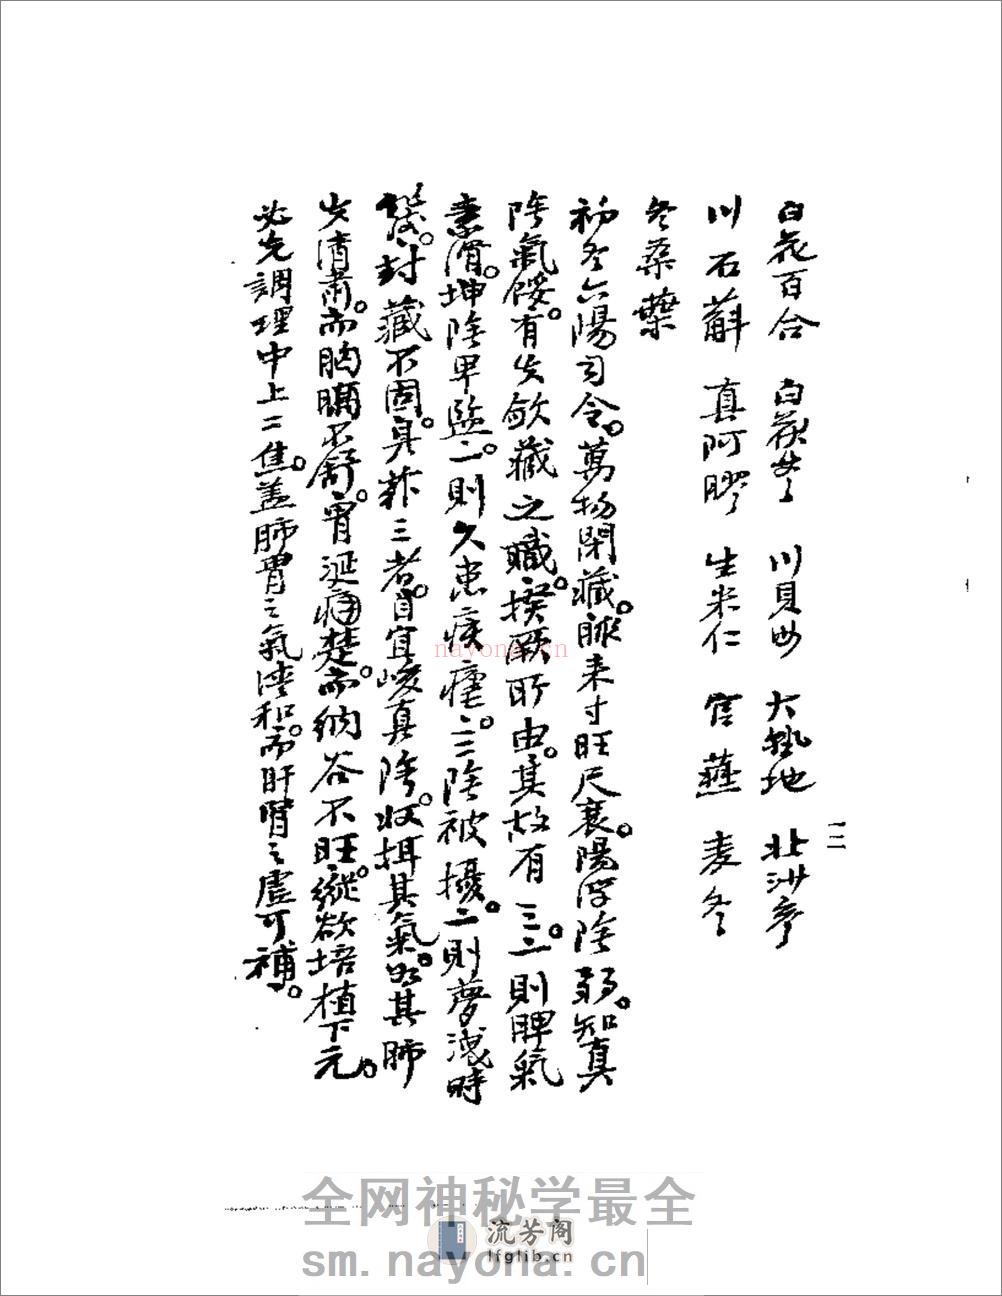 白花百合　白茯苓　川貝母　大熟地　北沙參
川石斛　真阿膠　生米仁　官燕　麦冬
冬桑葉
初冬六陽司令。萬物閉藏。脈来寸旺尺衰。陽浮陰弱。知真
陰氣餒。有失斂藏之職。揆厥所由。其故有三。一則脾氣
素滑。坤陰卑監。一則久患痎瘧。三陰被擾。一則夢洩時
發。封藏不固。具茲三者。自宜峻真陰。收摂其氣。其肺
失清肅。而胸膈不舒。胃涎痛楚。而納谷不旺。縱欲培植下元。
必先調理中上二焦。盖肺胃之氣浹和。而肝腎之虛可補。
一二
nayona.cn
全网神秘学最全
流芳阁
lfglib.cn
sm.nayona.cn